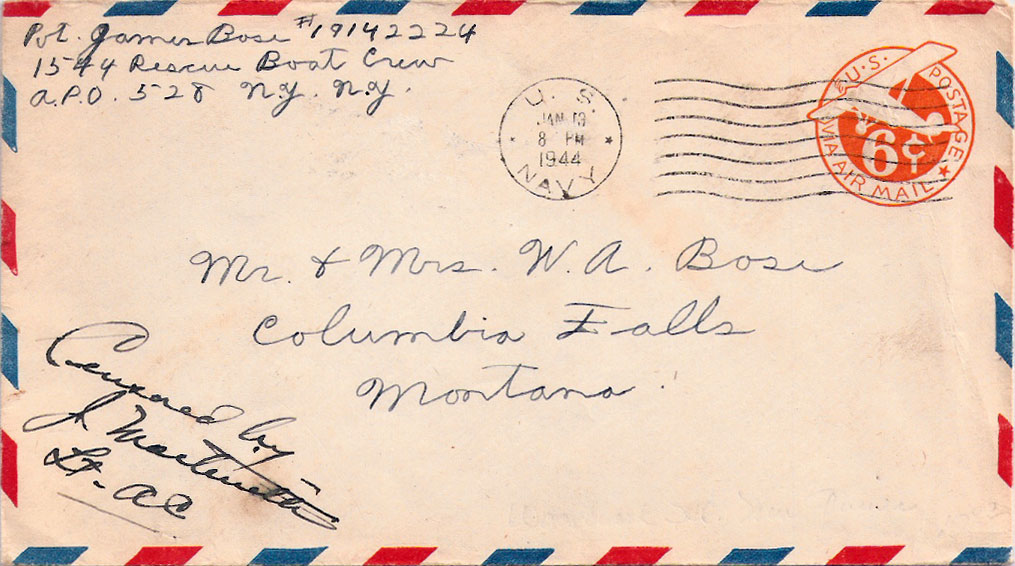 Pvt. James Bose #19142224
1544 Rescue Boat Crew
A.P.O. 528 N.Y. N.Y.
U. S.
JAN 13
8 PM
1944
NAVY
U.S. POSTAGE
6¢
VIA AIR MAIL
Mr. & Mrs. W. A. Bose
Columbia Falls
Montana
Censored by
J. Martinetti
Lt. AC